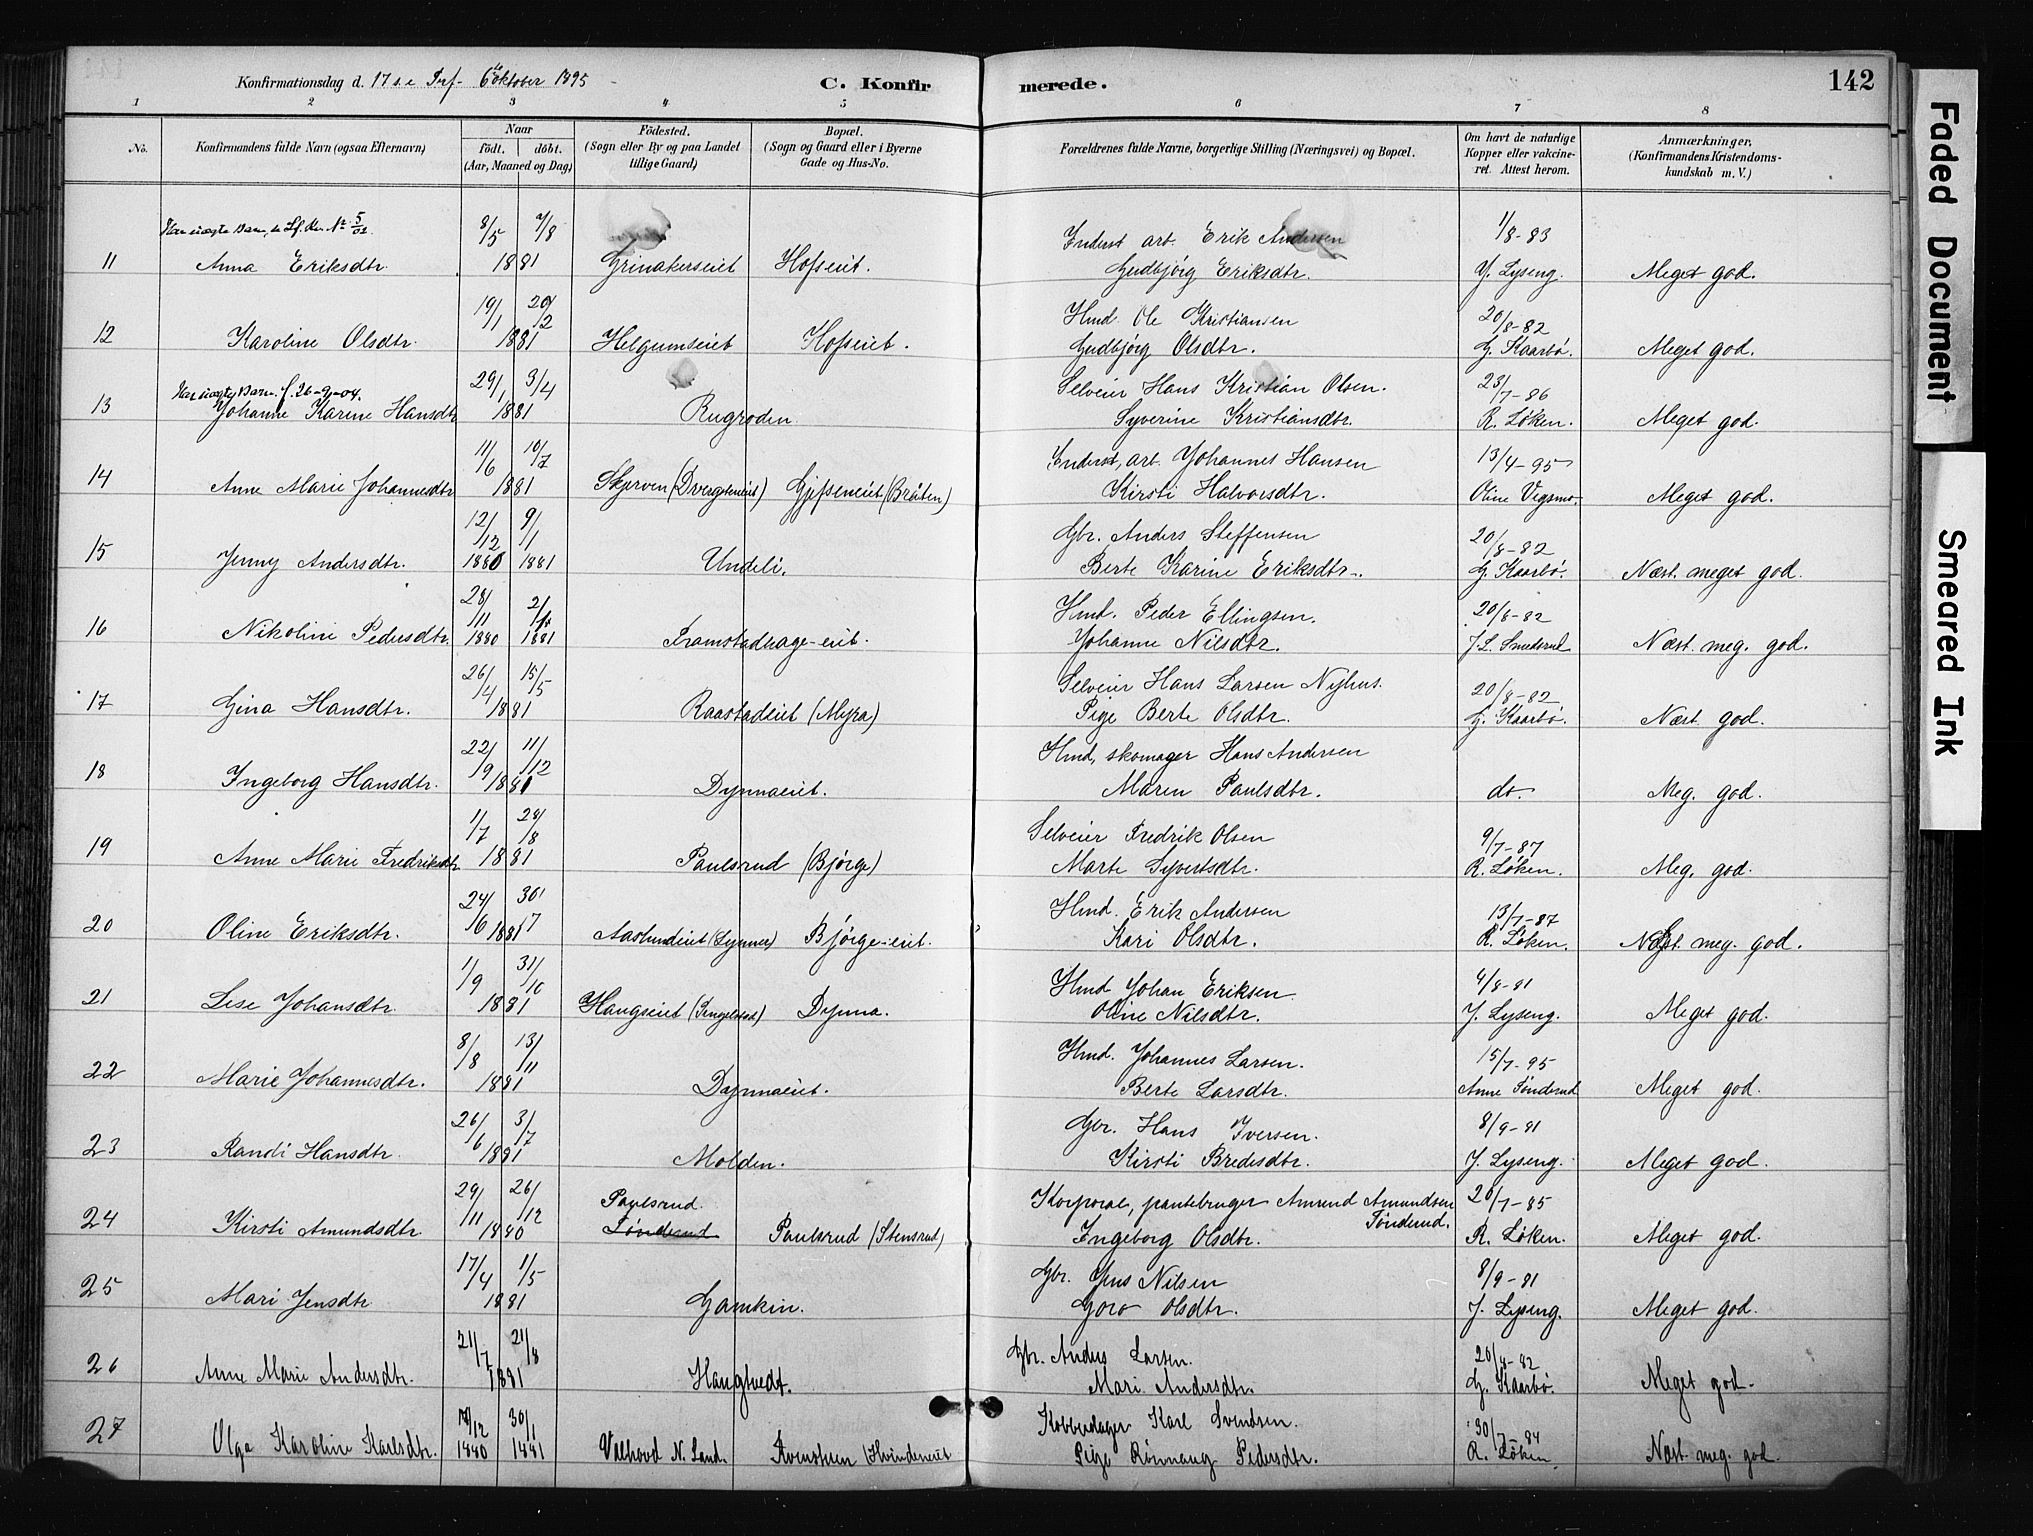 Konfirmationsdag d. 17 s. e. Tref. 6te oktober 1895
C. Konfirmerede.
142
1 2 3 4 5 6 7 8
No. Konfirmandens fulde Navn (ogsaa Efternavn) Naar födt. döbt. (Aar, Maaned og Dag) Födested. (Sogn eller By og paa Landet tillige Gaard) Bopæl. (Sogn og Gaard eller i Byerne Gade og Hus-No. Forældrenes fulde Navne, borgerlige Stilling (Næringsvei) og Bopæl. Om havt de naturlige Kopper eller vakcineret. Attest herom. Anmærkninger, (Konfirmandens Kristendomskundskab m. V.)
8/5 7/8 Inderst arb. Erik Andersen 1/8-83
11 Anna Eriksdtr. 1881 Grinakerseiet Hofseiet. Gudbjörg Eriksdtr. J. Lyseng. Meget god.
19/1 20/12 Hmd. Ole Kristiansen 20/8-82
12 Karoline Olsdtr. 1881 Helgumseiet Hofseiet. Gudbjörg Olsdtr. G. Kaarbö. Meget god.
29/1 3/4 Selveier Hans Kristian Olsen. 23/7-86
13 Johanne Karine Hansdtr. 1881 Rugroden. Syverine Kristiansdtr. R. Löken. Meget god.
11/6 10/7 Inderst, arb. Johannes Hansen 13/4-95
14 Anne Marie Johannesdtr 1881 Skjerven (Dvergsteneiet) Gjefseneiet (Bråten) Kirsti Halvorsdtr. Oline Vegsmo Meget god.
12/12 9/1 Gbr. Anders Steffensen 20/8-82
15 Jenny Andersdtr. 1880 1881 Undeli. Berte Karine Eriksdtr. G. Kaarbö. Næst. meget god.
28/11 Hmd. Peder Ellingsen. 20/8-82
16 Nikoline Pedersdtr. 1880 1881 Framstadhage-eiet. Johanne Nilsdtr. J. L. Smederud Næst. meg. god.
26/4 15/5 Selveier Hans Larsen Nyhus. 20/8-82
17 Gina Hansdtr. 1881 Raastadeiet (Myra) Pige Berte Olsdtr. G. Kaarbö. Næst. god.
22/9 11/12 Hmd, skomager Hans Andersen
18 Ingeborg Hansdtr. 1881 Dynnaeiet. Maren Paulsdtr. do. Meg. god.
1/7 24/8 Selveier Fredrik Olsen 9/7-87
19 Anne Marie Fredriksdtr 1881 Paulsrud (Bjørge) Marte Syvertsdtr. R. Löken. Meg. god.
24/6 30/7 Hmd. Erik Andersen 13/7-87
20 Oline Eriksdtr. 1881 Aaslundeiet (Lynner) Bjørge-eiet. Kari Olsdtr. R. Löken. Næst. meg. god.
1/9 31/10 Hmd Johan Eriksen 4/8-81
21 Lise Johansdtr. 1881 Haugseiet (Tingelstad) Dynna. Oline Nilsdtr. J. Lyseng. Meget god.
8/8 13/11 Hmd. Johannes Larsen. 15/7-95
22 Marie Johannesdtr. 1881 Dynnaeiet. Berte Larsdtr. Anne Tönderud Meget god.
26/6 3/7 Gbr. Hans Iversen. 8/9-81
23 Randi Hansdtr. 1881 Molden. Kirsti Bredesdtr. J. Lyseng. Meget god.
29/11 26/12 Paulsrud. Korporal, pantebruger Amund Amundsen Tönderud. 20/7-85
24 Kirsti Amundsdtr. 1880 Tönderud Paulsrud (Stensrud) Ingeborg Olsdtr. R. Löken. Meget god.
17/4 1/5 Gbr. Jens Nilsen 8/9-81
25 Mari Jensdtr 1881 Gamkin. Goro Olsdtr. J. Lyseng. Meget god.
21/7 21/8 Gbr. Anders Larsen.
26 Anne Marie Andersdtr. 1881 Haugtvedt. Mari Andersdtr. G. Kaarbö. Meget god.
30/1 Kobberslager Karl Svendsen. 30/7-84
27 Olga Karoline Karlsdtr. 1880 1881 Valhovd N. Land. Kvensteen (Hvindeneiet Pige Rönnaug Pedersdtr. R. Löken. Næst. meg. god.
Faded Document
Smeared Ink